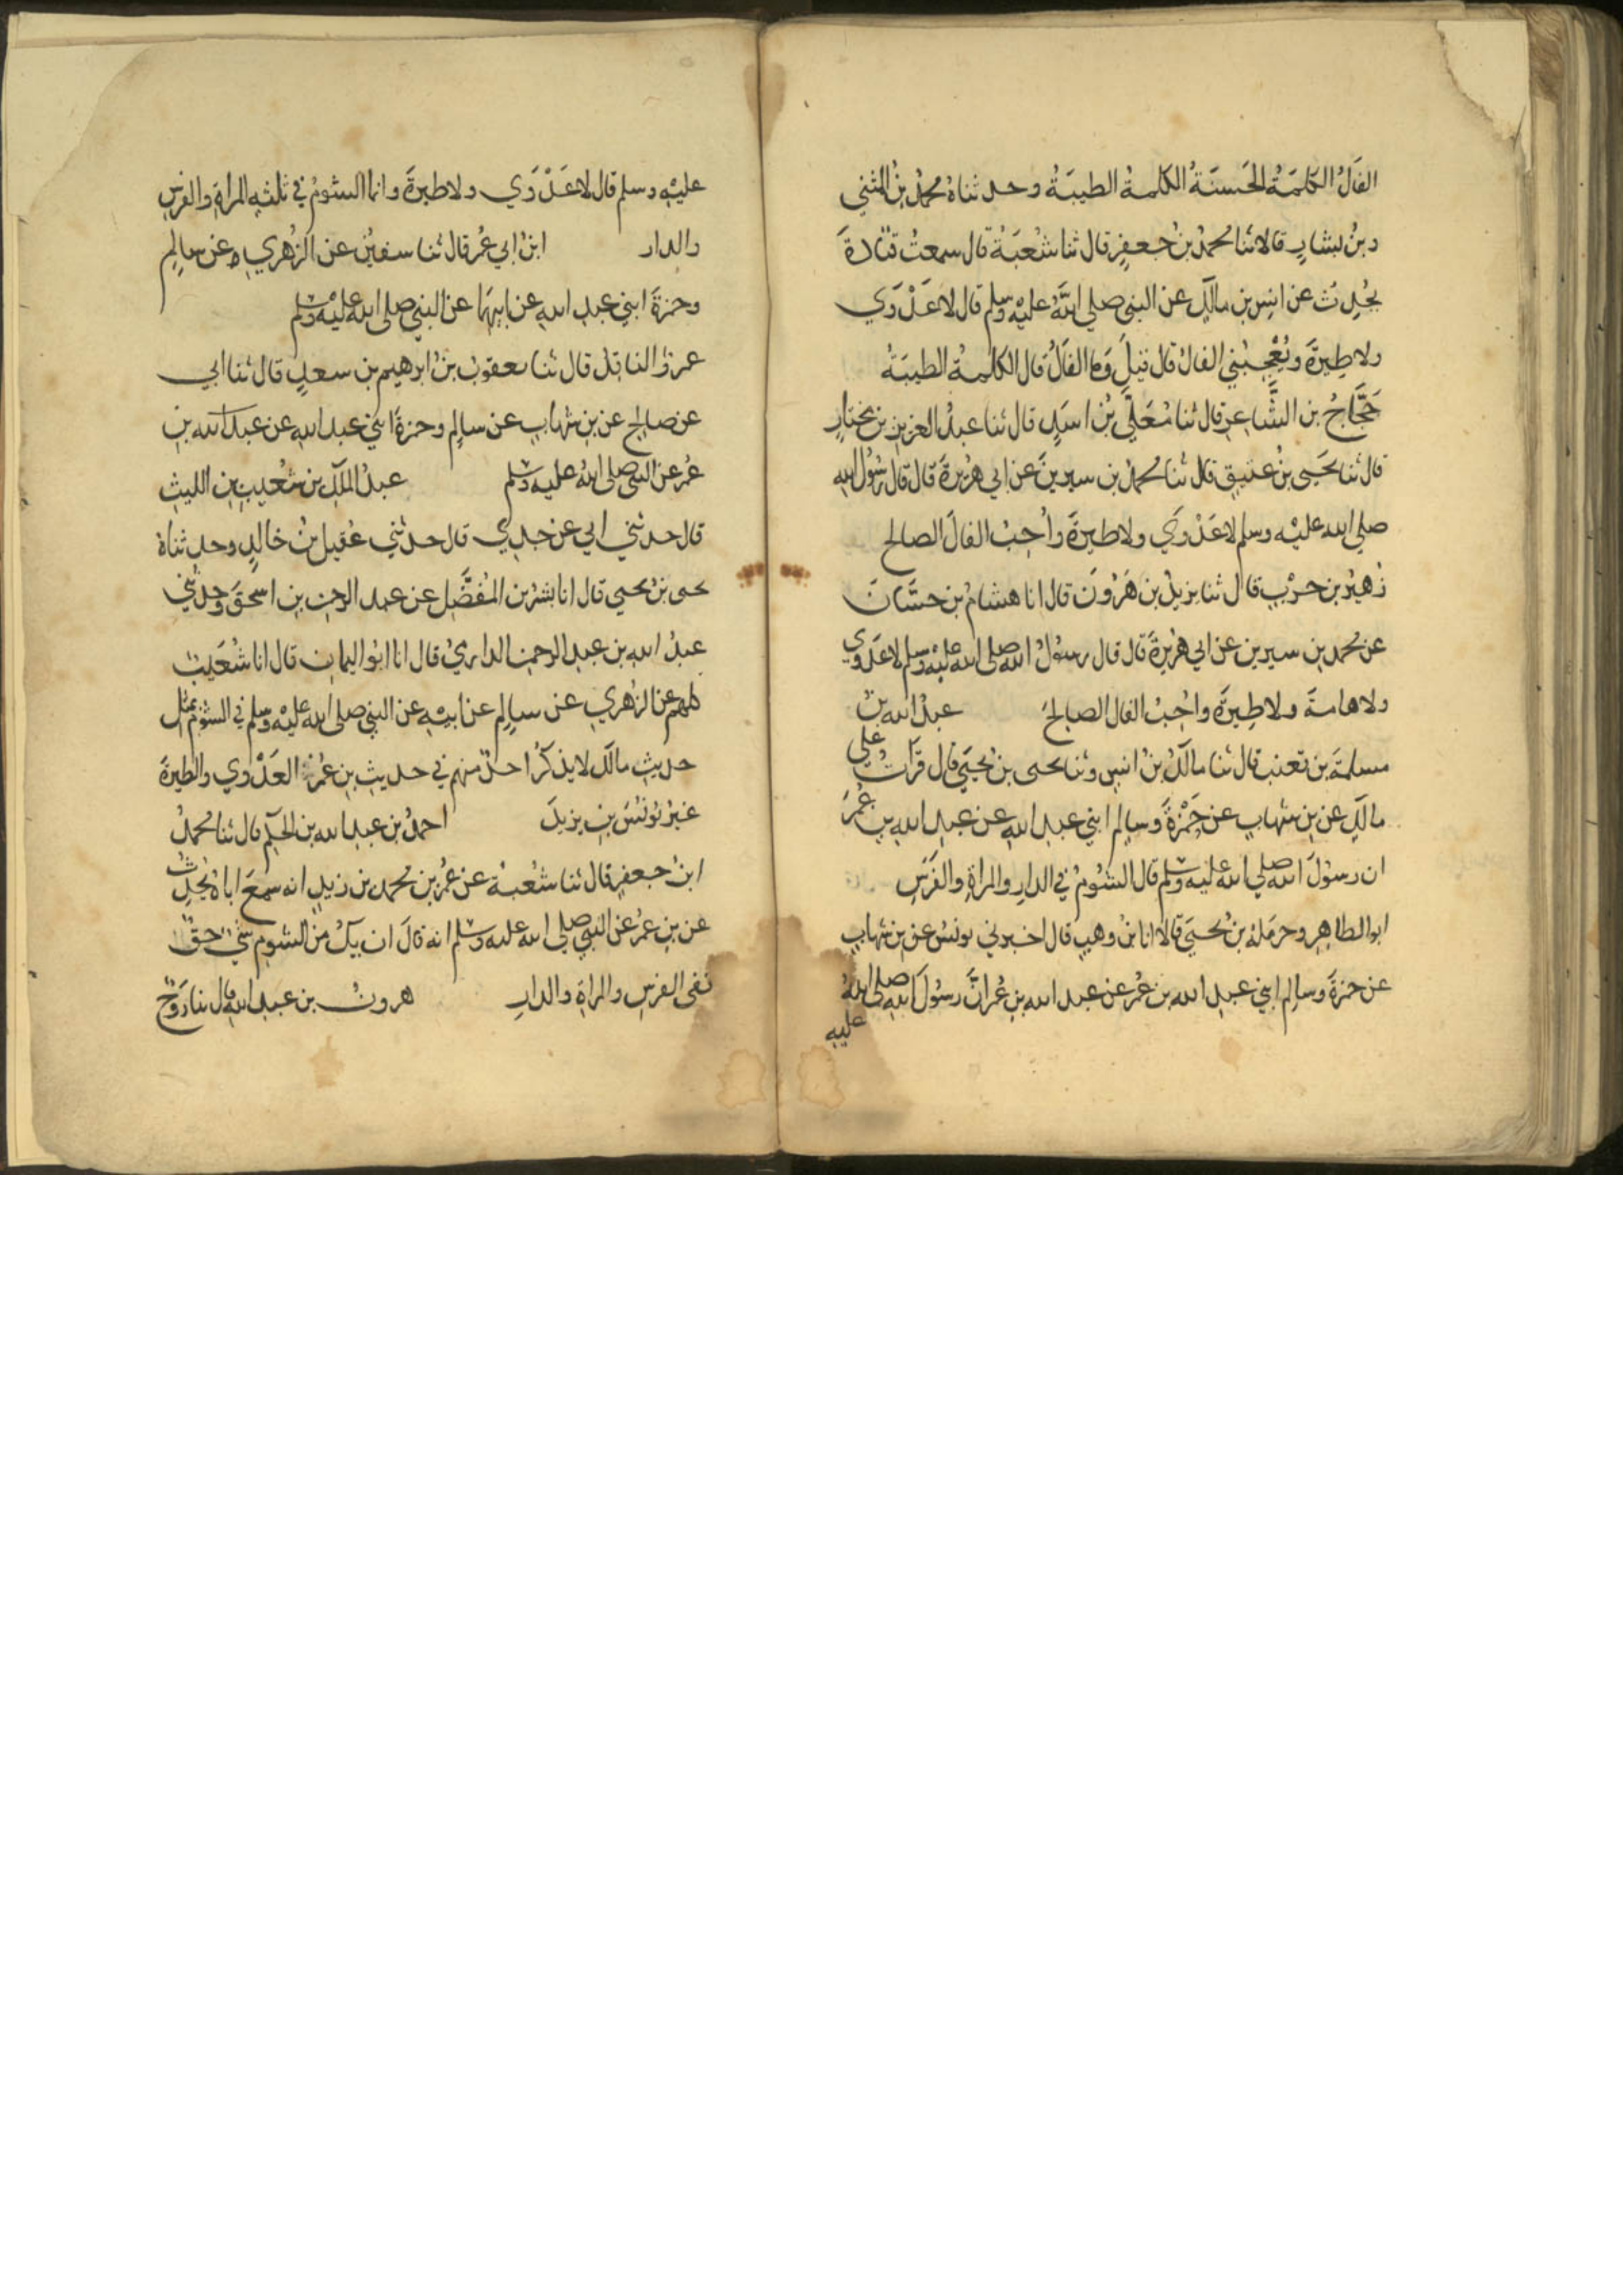 الفَالُ الكَلمَةُ الحَسنَةُ الكلمةُ الطيبَةُ وحدثناهُ محمدُ بنُ المثني
وبنُ بشارٍ قالا ثنا محمدُ بنُ جعفرٍ قال ثنا شُعبَةُ قال سمعتُ قتادةَ
يُحدِثُ عن انسِ بنِ مالكٍ عن النبي صلي اللهُ عليهِ وسلم قال لا عَدْوَي
ولا طِيرَةَ ويُعْجِبُني الفالُ قال قيلَ وَما الفَالُ قال الكلمةُ الطيبَةُ
حَجَّاجُ بن الشَّاعِرِ قال ثنا مُعَلَّي بْنُ اسَدٍ قال ثنا عبدُ العزيزِ بن مختارٍ
قال ثنا يَحيَى بنُ عتيقٍ قال ثنا محمدُ بن سيرينَ عن ابي هُرَيرةَ قال قال رسُولُ اللهِ
صلي الله عليْه وسلم لا عَدْوَي ولا طيرَةَ واُحِبُّ الفالَ الصالحَ
زُهيرُ بن حَرْبٍ قال ثنا يزيدُ بن هَرُونَ قال انا هشامُ بن حسَّانَ
عن محمدِ بنِ سيرين عن ابي هُرَيرةَ قال قال رسُولُ اللهِ صلى الله عليْه وسلم لا عَدوي
ولا هامةَ ولا طِيرَةَ واُحِبُّ الفال الصالحَ عبدُ الله بنُ
مسلمةَ بن قعنبٍ قال ثنا مالكُ بنُ انسٍ وثنا يحيى بن يحيَي قال قرَاتُ علي
مالكٍ عن بنِ شهابٍ عن حَمْزةَ وسالِمٍ ابني عبدِ اللهِ عن عبدِ اللهِ بن عُمَرَ
ان رسُولَ اللهِ صلي الله عليه وسلم قال الشُومُ في الدارِ والمراةِ والفَرَسِ
ابو الطاهِرِ وحرمَلةُ بنُ يحيَي قالا انا بنُ وهبٍ قال اخبرني يونسُ عن بن شهابٍ
عن حمزةَ وسالِمٍ ابني عبدِ الله بن عُمَرَ عن عبد الله بنِ عُمر انَّ رسُولَ اللهِ صلى اللهُ
عليه
عليْهِ وسلم قال لا عَدْوَي ولا طيرةَ وانما الشومُ في ثلثةٍ المراةِ والفرسِ
والدار ابنُ ابي عُمَر قال ثنا سفينُ عن الزُهري ه عن سالِمٍ
وحمزةَ ابني عبدِ اللهِ عن ابيهِمَا عن النبيِ صلى الله عليْه وسلم
عمرٌو الناقدُ قال ثنا يعقوبُ بنُ ابرهيم بن سعدٍ قال ثنا ابي
عن صالحٍ عن بن شهابٍ عن سالِمٍ وحمزةَ ابني عبد اللهِ عن عبد الله بنِ
عُمَر عن النبي صلى اللهُ عليه وسلم عبدُ الملكِ بن شُعيبِ بنِ الليثِ
قال حدثني ابي عن جدي قال حدثني عُقيل بنُ خالدٍ وحدثناهُ
يحيى بنُ يحيي قال انا بشرُ بن المُفضَّلِ عن عبد الرحمنِ بن اسحقَ وحدثني
عبدُ اللهِ بن عبدِ الرحمنِ الدارميُ قال انا ابُو اليمانِ قال انا شُعَيبٌ
كلهم عن الزُهري عن سالِمٍ عن ابيهِ عن النبي صلى الله عليْه وسلم في الشومِ بمثلِ
حديثِ مالك لا يذكُرُ احدٌ منهم في حديثِ بن عُمَرَ العَدْوي والطيرةَ
غيرُ يُونُسَ بنِ يزيدَ احمدُ بن عبد الله بن الحكم قال ثنا محمدُ
ابنُ جعفرٍ قال ثنا شُعبَةُ عن عُمَرَ بن محمد بن زيدٍ انه سمعَ اباهُ يُحدثُ
عن بنِ عُمَرَ عن النبي صلى الله عليه وسلم انه قالَ ان يكُ من الشومِ شيٌ حقٌ
ففي الفرسِ والمراةِ والدارِ هرونُ بن عبدِ اللهِ قال ثنا رَوْحُ